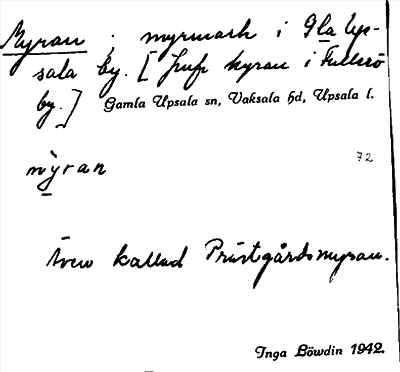 Myran ; myrmark i Gla Up-
sala by. [Jmfr hyran i Fullerö
by.] Gamla Upsala sn, Vaksala hd, Upsala l.
72
my̆ran
Även kallad Prästgårdsmyran.
Inga Löwdin 1942.